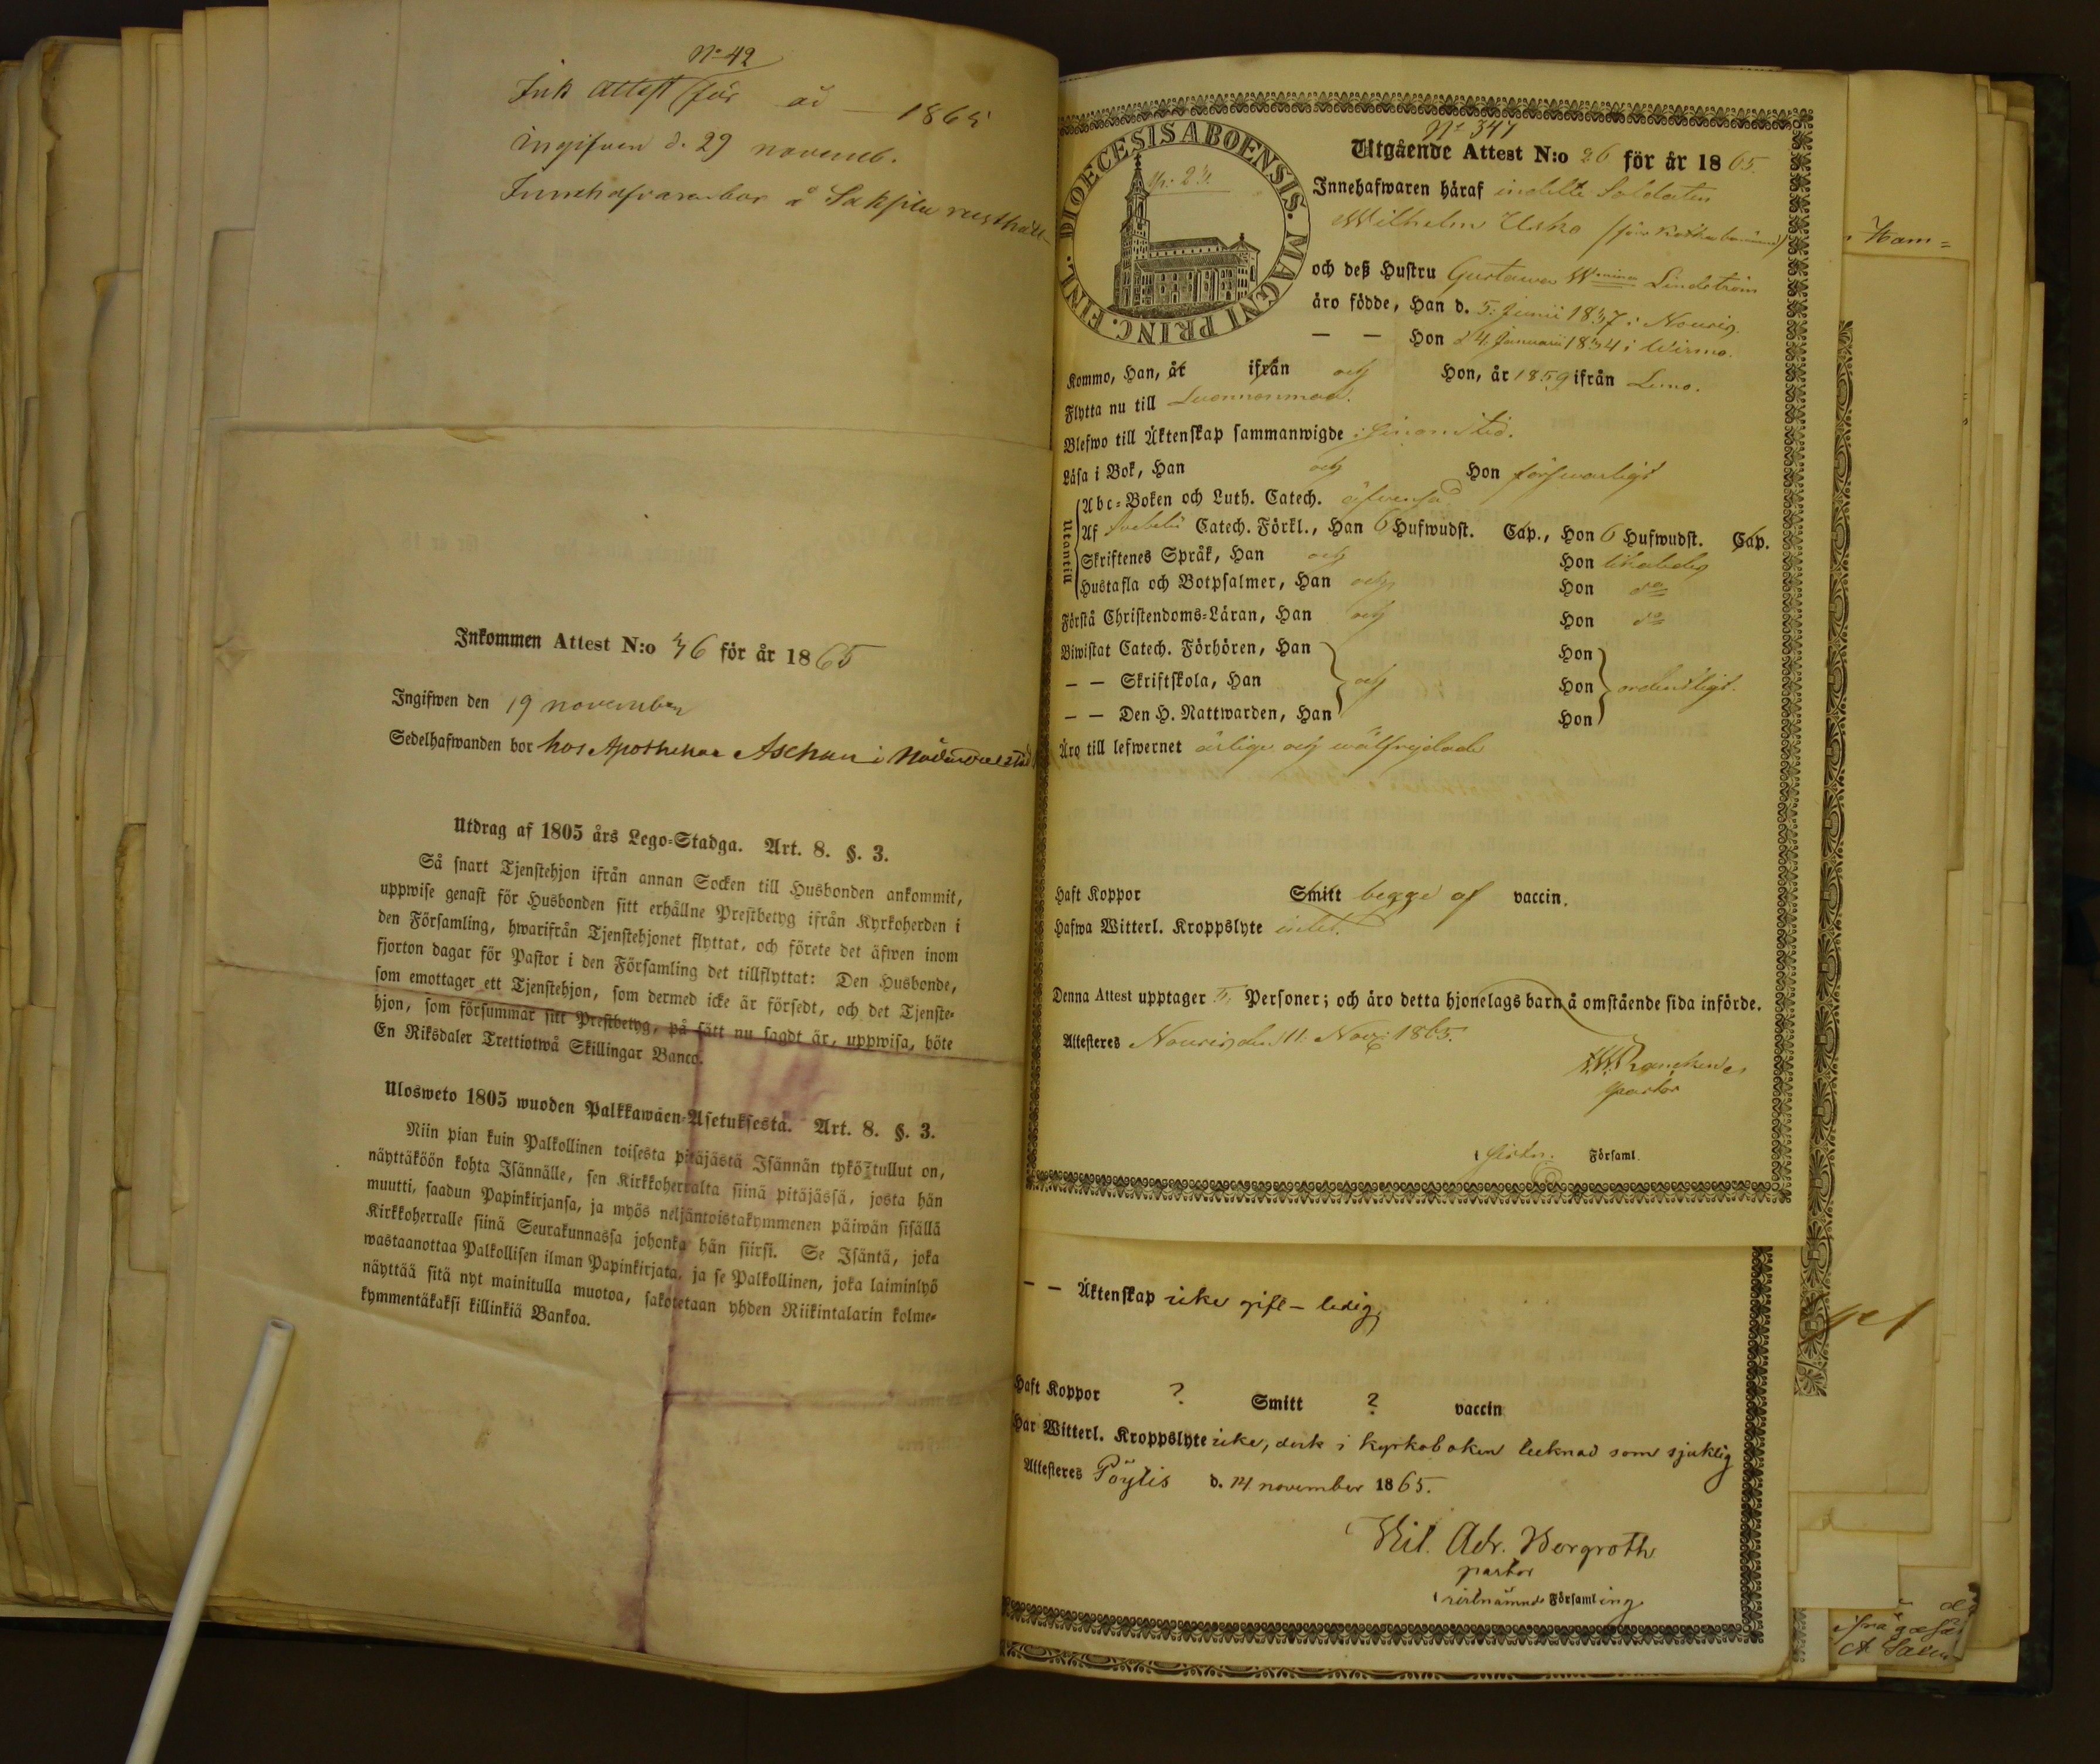 No 42
Ink Attest för år — 1865
ingifven d. 29 novemb.
Innehafvaren bor å rusthåll
Inkommen Attest N:o 36 för år 1865
Ingifwen den 19 november
Sedelhafwanden bor hos Apothekar Aschan i Nådendal stad
Utdrag af 1805 års Lego-Stadga. Art. 8. §. 3.
Så snart Tjenstehjon ifrån annan Socken till Husbonden ankommit,
uppwise genast för Husbonden sitt erhållne Prestbetyg ifrån Kyrkoherden i
den Församling, hwarifrån Tjenstehjonet flyttat, och förete det äfwen inom
fjorton dagar för Pastor i den Församling det tillflyttat: Den Husbonde,
som emottager ett Tjenstehjon, som dermed icke är försedt, och det Tjenste-
hjon, som försummar sitt Prestbetyg, på sätt nu sagdt är, uppwisa, böte
En Riksdaler Trettiotwå Skillingar Banco.
Ulosweto 1805 wuoden Palkkawäen-Asetuksesta. Art. 8. §. 3.
Niin pian kuin Palkollinen toisesta pitäjästä Isännän tykö tullut on,
näyttäköön kohta Isännälle, sen Kirkkoherralta siinä pitäjässä, josta hän
muutti, saadun Papinkirjansa, ja myös neljäntoistakymmenen päiwän sisällä
Kirkkoherralle siinä Seurakunnassa johonka hän siirsi. Se Isäntä, joka
wastaanottaa Palkollisen ilman Papinkirjata, ja se Palkollinen, joka laiminlyö
näyttää sitä nyt mainitulla muotoa, sakotetaan yhden Riikintalarin kolme-
kymmentäkaksi killinkiä Bankoa.
DIOECESIS ABOENSIS. MAGNI PRINC. FINL.
No 347
Utgående Attest N:o 26 för år 1865.
Innehafwaren häraf indelte Soldaten
Wilhelm Usko
och deß Hustru Gustawa Wmina Lindström
äro födde, Han d. 5: Junii 1837 i Nousis.
— — Hon d 4. Januarii 1834 i Wirmo.
Kommo, Han, år ifrån och Hon, år 1859 ifrån Lemo.
Flytta nu till Luonnonmaa.
Blefwo till Äktenskap sammanwigde i sinom tid.
Läsa i Bok, Han och Hon förswarligt
Utantill
Abc-Boken och Luth. Catech. äfwenså
Af Svebelii Catech. Förkl., Han 6 Hufwudst. Cap., Hon 6 Hufwudst. Cap.
Skriftenes Språk, Han och Hon likaledes
Hustafla och Botpsalmer, Han och Hon do
Förstå Christendoms-Läran, Han och Hon do
Biwistat Catech. Förhören, Han Hon
— — Skriftskola, Han och Hon ordentligt.
— — Den H. Nattwarden, Han Hon
Äro till lefwernet ärlige och wälfrejdade
Haft Koppor Smitt begge af vaccin.
Hafwa Witterl. Kroppslyte intet.
Denna Attest upptager 5. Personer; och äro detta hjonelags barn å omstående sida införde.
Attesteres Nousis den 11. Nov: 1865.
pastor
i Församl.
— — Äktenskap icke gift – ledig
Haft Koppor ? Smitt ? vaccin
Har Witterl. Kroppslyte icke, dock i kyrkoboken tecknad som sjuklig
Attesteres Pöytis d. 14 november 1865.
Wil. Adr. Bergroth
pastor
i sistnämnde Församling
Ham=